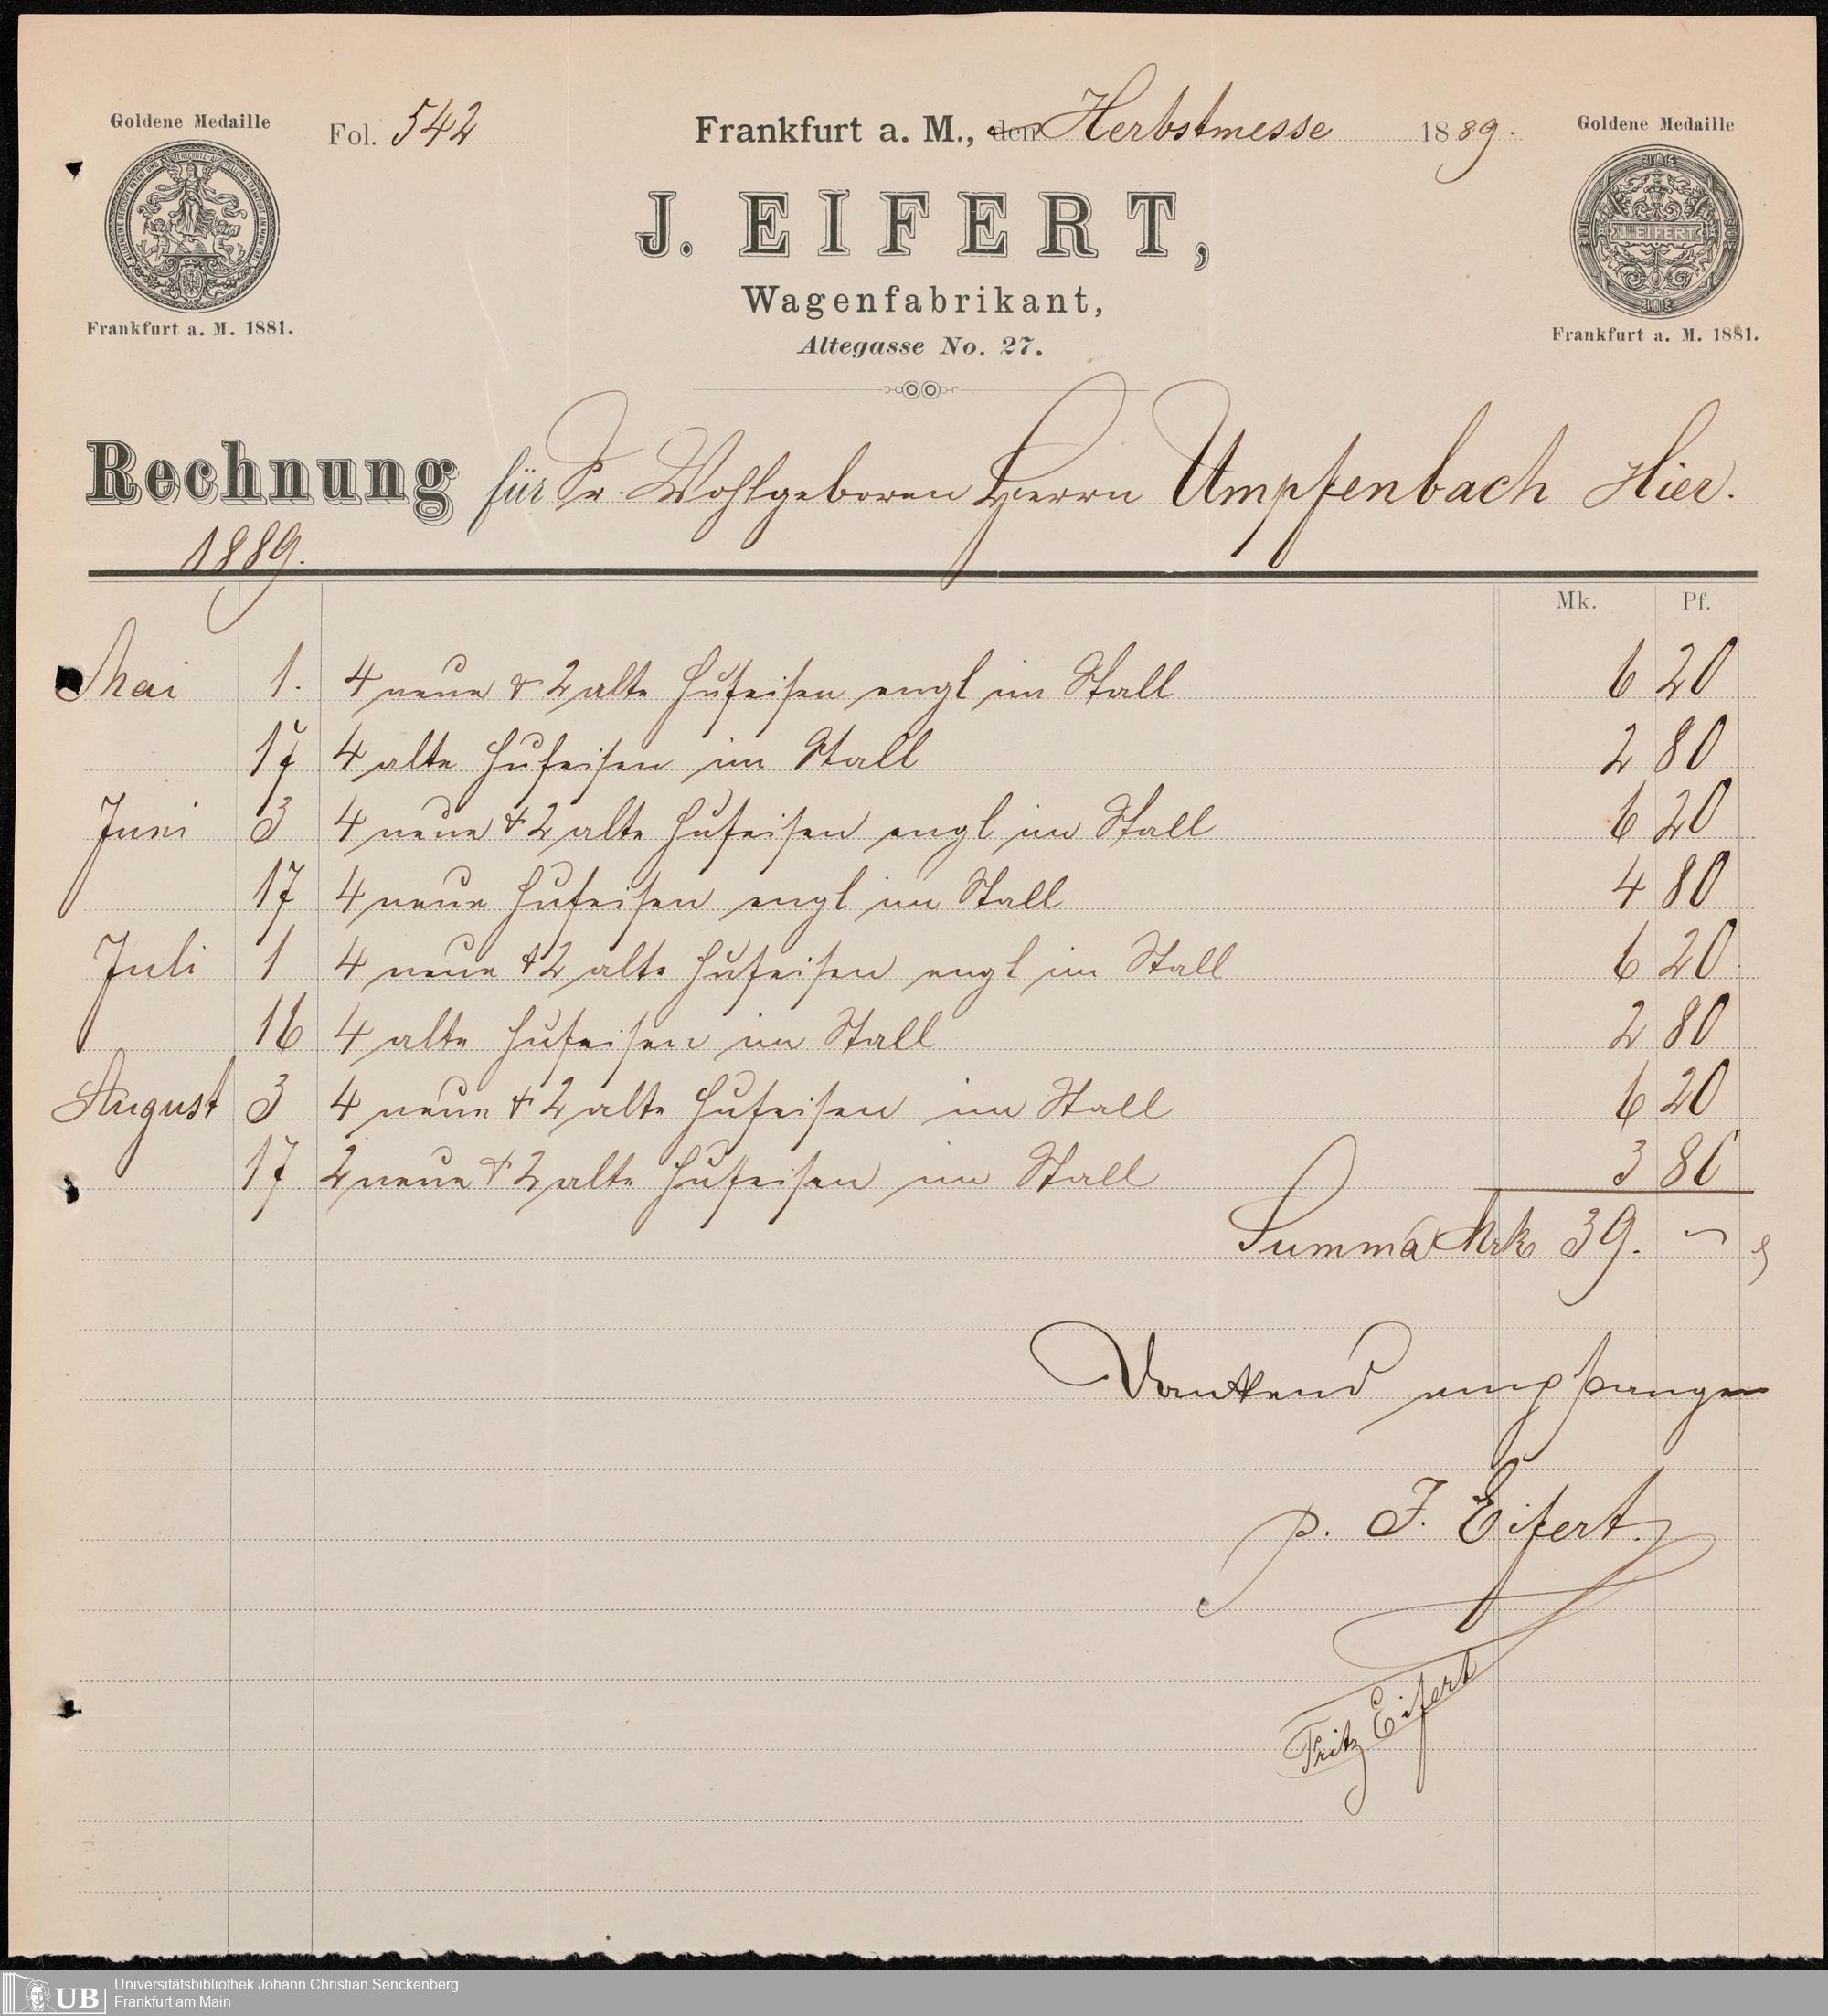 Goldene Medaille
Fol. 542
Frankfurt a. M., den Herbstmesse 1889.
Goldene Medaille
J. EIFERT,
J. EIFERT
Wagenfabrikant,
Altegasse No. 27.
Frankfurt a. M. 1881.
Frankfurt a. M. 1881.
Rechnung für Sr. Wohlgeboren Herrn Umpfenbach Hier.
1889.
Mk. Pf.
Mai 1. 4 neue & 2 alte Hufeisen engl im Stall 6 20
17 4 alte Hufeisen im Stall 2 80
Juni 3 4 neue & 2 alte Hufeisen engl im Stall 6 20
17 4 neue Hufeisen engl im Stall 4 80
Juli 1 4 neue & 2 alte Hufeisen engl im Stall 6 20
16 4 alte Hufeisen im Stall 2 80
August 3 4 neue & 2 alte Hufeisen im Stall 6 20
17 2 neue & 2 alte Hufeisen im Stall 3 80
Summa Mrk 39. -
Dankend empfangen
p. J. Eifert.
Fritz Eifert
UB Universitätsbibliothek Johann Christian Senckenberg
Frankfurt am Main